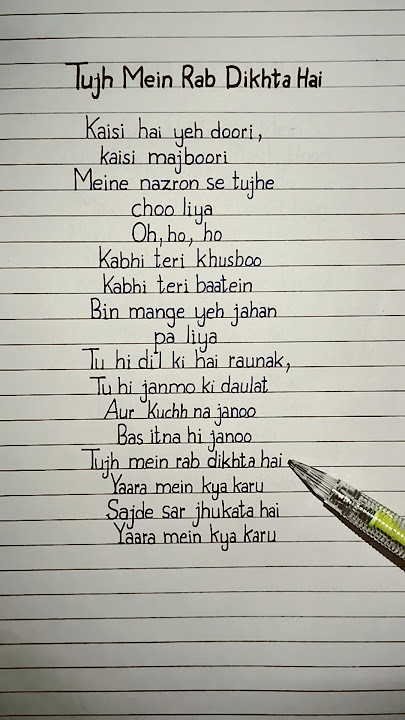 Tujh Mein Rab Dikhta Hai
Kaisi hai yeh doori,
kaisi majboori
Meine nazron se tujhe
choo liya
Oh, ho, ho
Kabhi teri khusboo
Kabhi teri baatein
Bin mange yeh jahan
pa liya
Tu hi dil ki hai raunak,
Tu hi janmo ki daulat
Aur Kuchh na janoo
Bas itna hi janoo
Tujh mein rab dikhta hai
Yaara mein kya karu
Sajde sar jhukata hai
Yaara mein kya karu